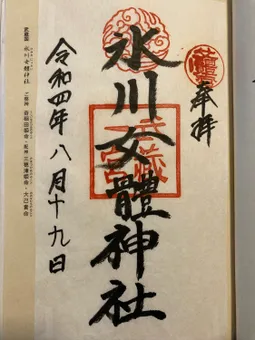 奉拝
氷川女體神社
武蔵
一宮
令和四年八月十九日
武蔵国 氷川女體神社